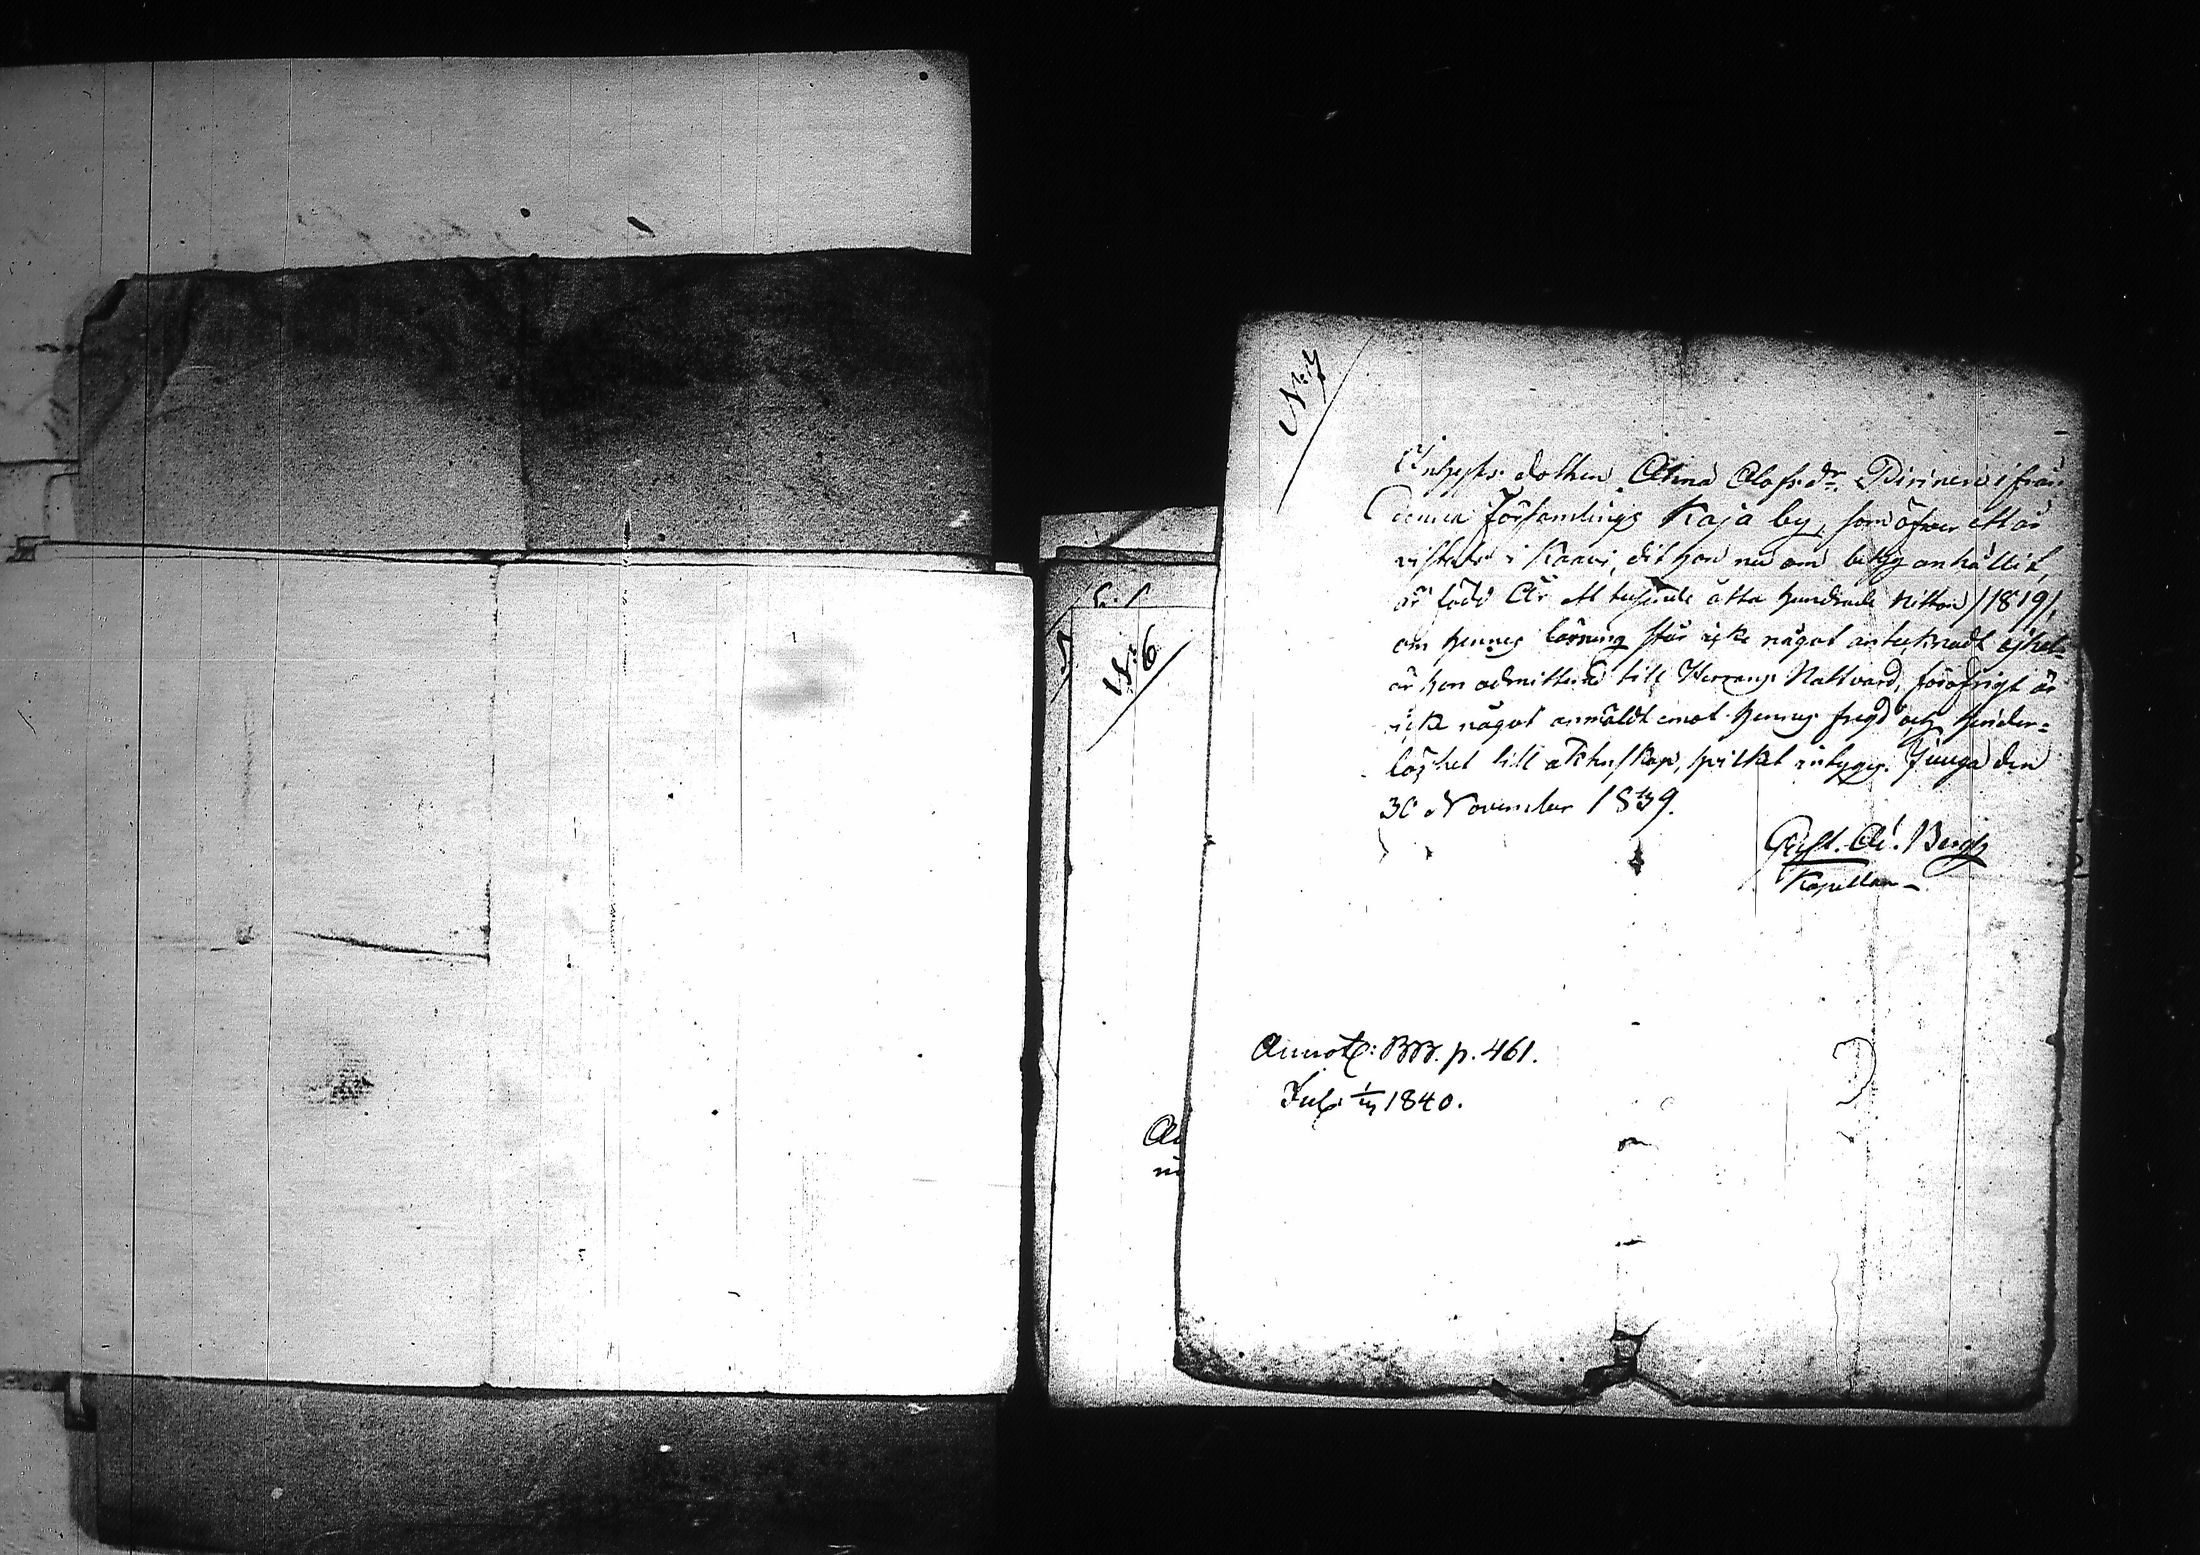 N:7
Inhyses dottren Anna Olofsdr. Pirinen ifrån
denna församlings Kaja by, som öfwer ett år
vistats i Kaavi, dit hon nu om betyg anhållit,
är född År ett tusende åtta hundrade Nitton /1819/,
om hennes läsning står icke något antecknadt
är hon admitterad till Herrans Nattvard, föröfrigt är
icke något anmäldt emot hennes fregd och hinder-
löshet till äktenskap, hvilket intygas. Juuga den
30 November 1839.
Gust. Ad. Bergh
Kapellan
N:6
Annot: BB. p. 461.
1840.